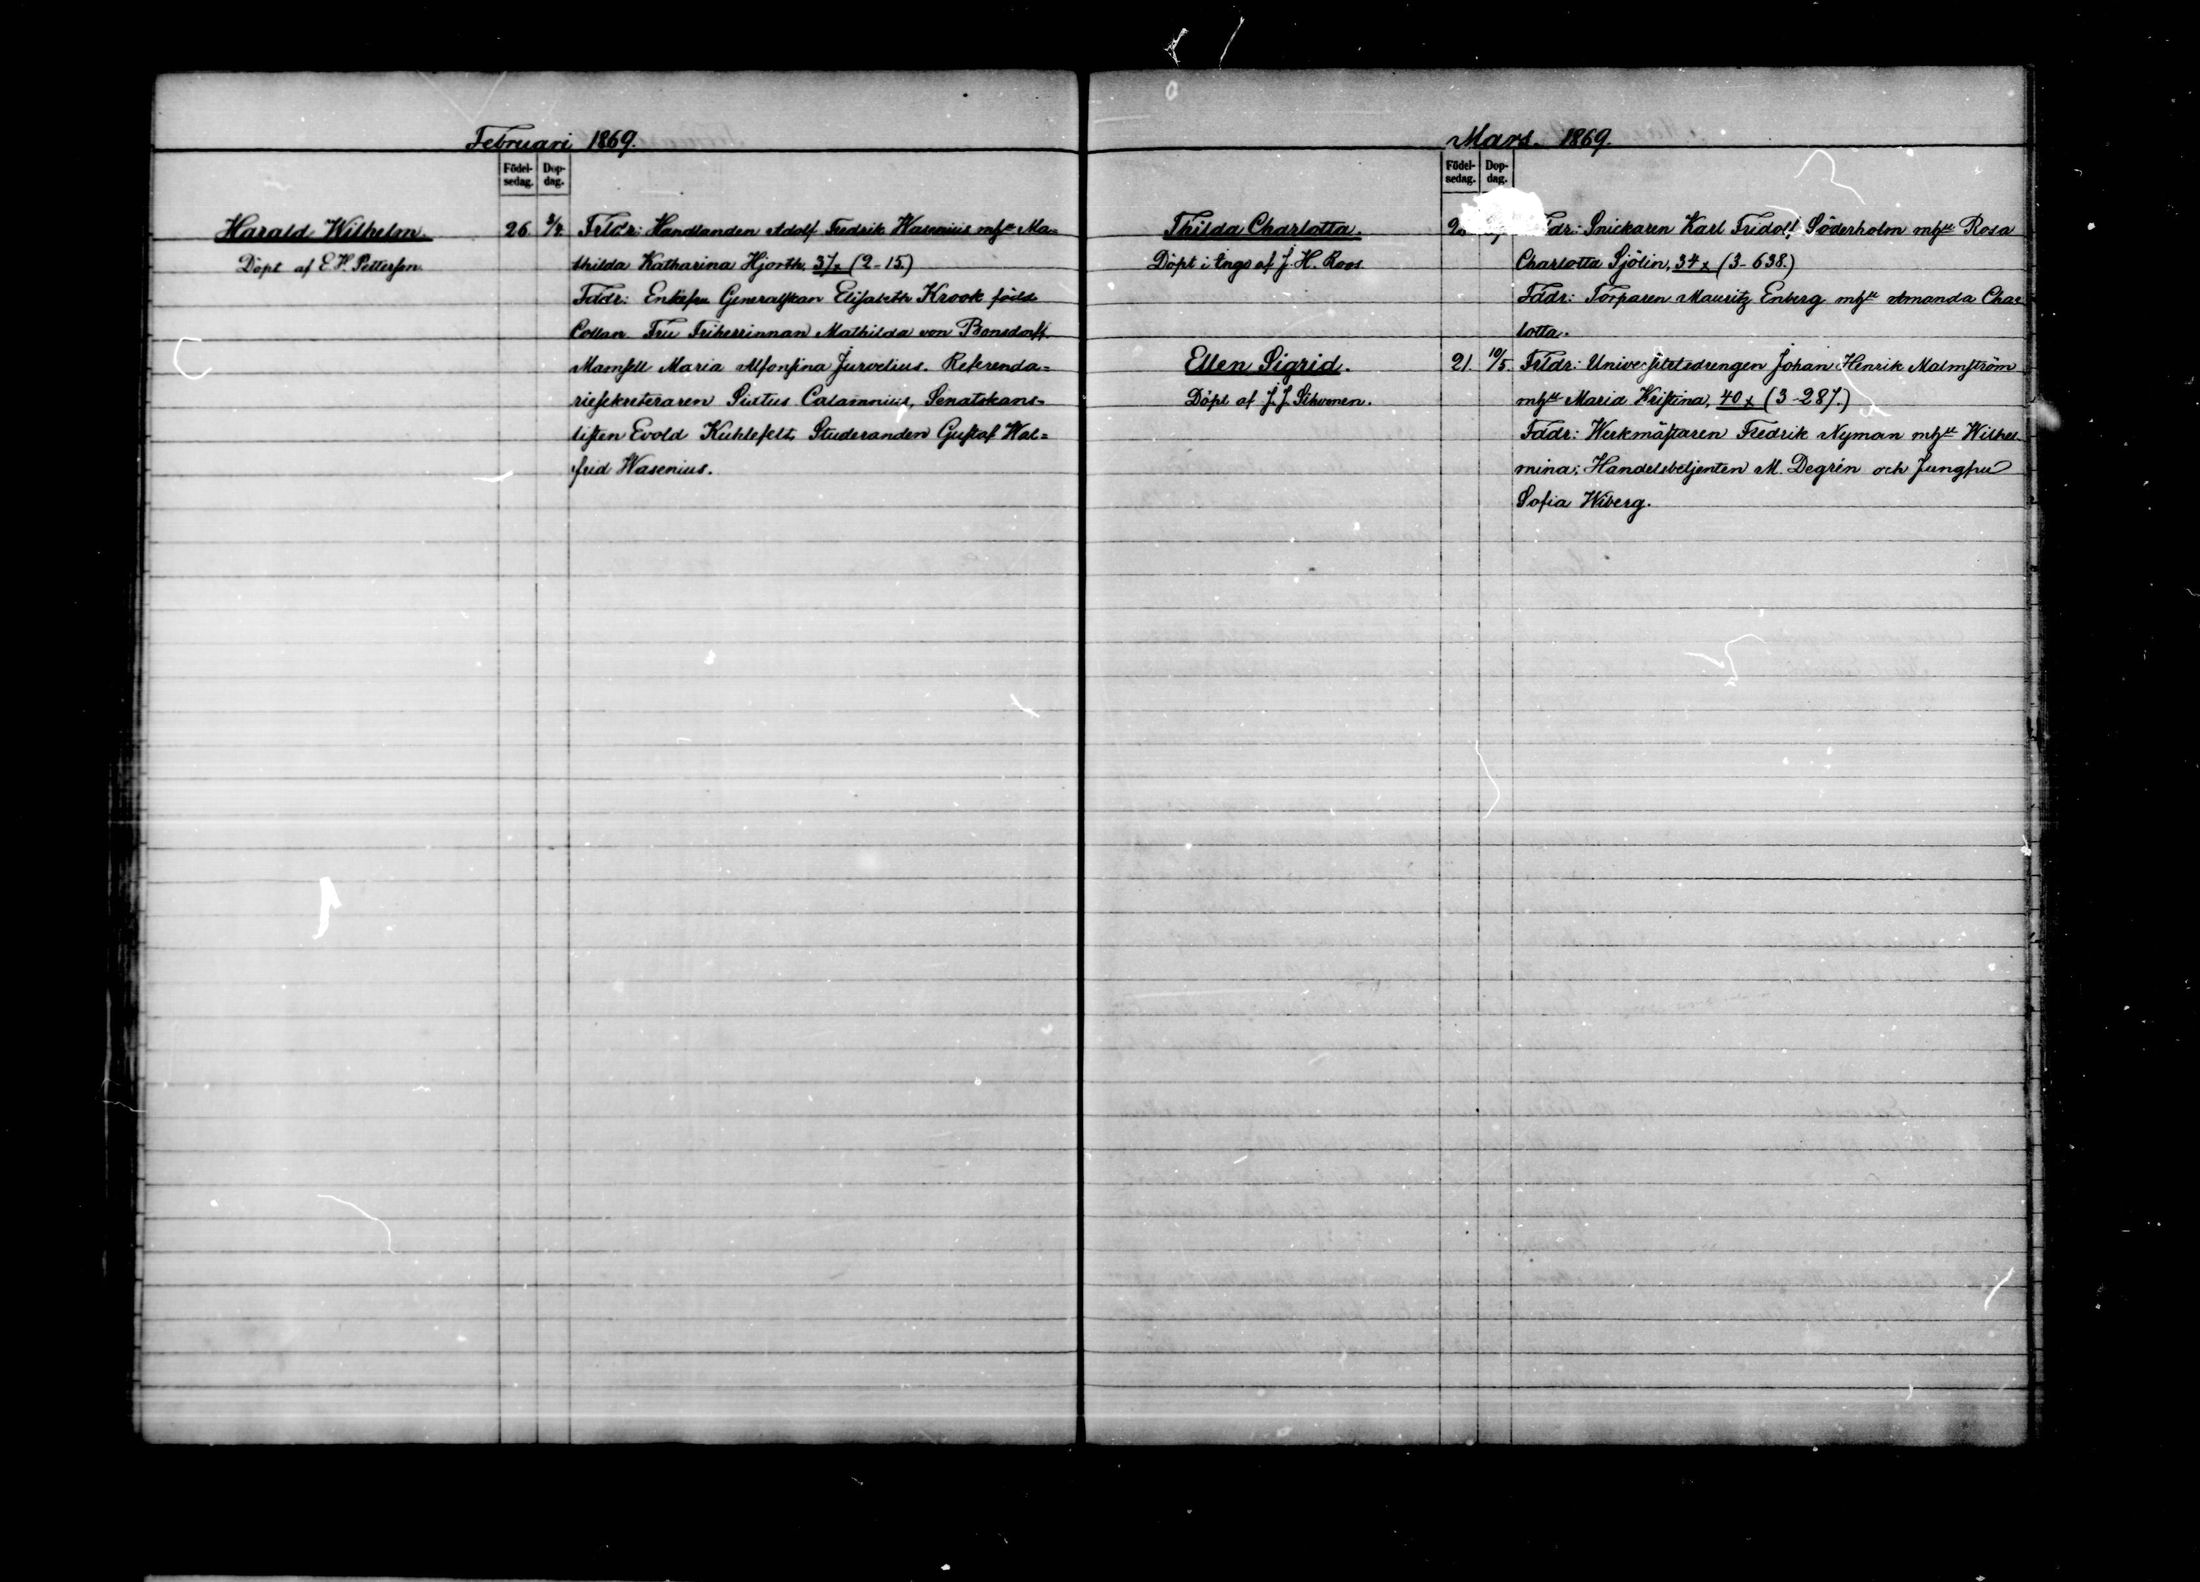 Februari 1869.
Födel-
sedag.
Dop-
dag.
Harald Wilhelm.
Döpt af E. W. Pettersson.
26
3/4
Frldr: Handlanden Adolf Fredrik Wasenius mhu Ma=
thilda Katharina Hjorth, 37 x (2-15)
Fddr: Enkefru Generalskan Elisabeth Krook född
Collan Fru Friherrinnan Mathilda von Bonsdorff.
Mamsell Maria Alfonsina Jurvelius. Referenda=
riesekreteraren Sixtus Calamnius, Senatskans=
listen Evold Kuhlefelt, Studeranden Gustaf Wal=
frid Wasenius.
Mars. 1869.
Födel-
sedag.
Dop-
dag.
Thilda Charlotta.
Döpt i Ingo af J. H. Roos.
dr: Snickaren Karl Fridolf Söderholm mhu Rosa
Charlotta Sjölin, 34 x (3-638.)
Fddr: Torparen Mauritz Enberg mhu Amanda Char
lotta.
Ellen Sigrid.
Döpt af J. J. Sihvonen.
21.
10/5
Frldr: Universitetsdrengen Johan Henrik Malmström
mhu Maria Kristina, 40 x (3-287.)
Fddr: Werkmästaren Fredrik Nyman mhu Wilhel
mina; Handelsbetjenten M. Degrén och Jungfru
Sofia Wiberg.